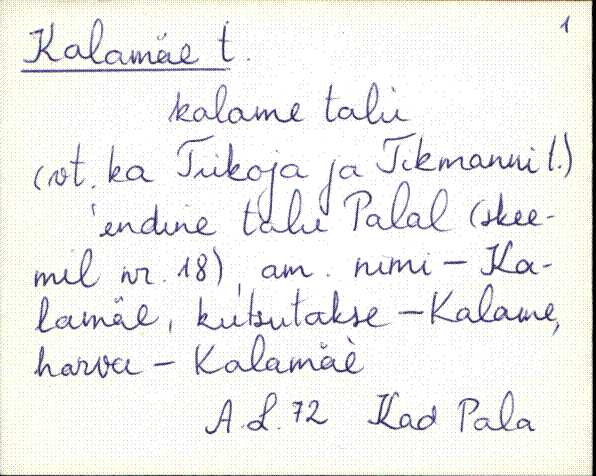 1
Kalamäe t.
kalame talu
(vt. ka Tiikoja ja Tikmanni t.)
'endine talu Palal (skee-
mil nr. 18), am. nimi – Ka-
lamäe, kutsutakse – Kalame,
harva – Kalamäè
A.L. 72 Kad Pala